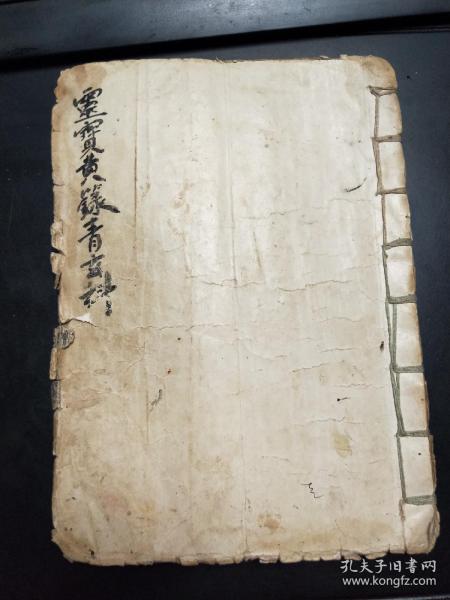 靈寳黄籙青玄科
孔夫子旧书网
www.kongfz.com